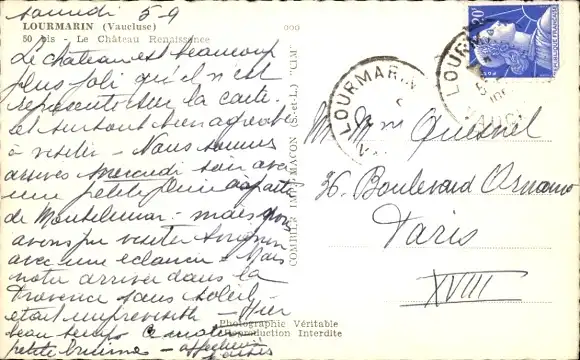 samedi 5-9
LOURMARIN (Vaucluse)
50 bis - Le Château Renaissance
Le château est beaucoup
plus joli qu'il n'est
représenté sur la carte.
et surtout bien agréable
à visiter - Nous sommes
arrivés mercredi soir avec
une petite pluie à partir
de Montelimar - mais nous
avons pu visiter Avignon
avec une éclaircie - Mais
notre arrivée dans la
Provence sans soleil
était imprévisible - Hier
beau temps
petite bruine -
COMBIER IMP. MACON (S.-et-L.) "CIM"
Photographie Véritable
Reproduction Interdite
20F
LOURMARIN
LOURMARIN
VAUCLUSE
M. Mme Quesnel
36. Boulevard Ornano
Paris
XVIII